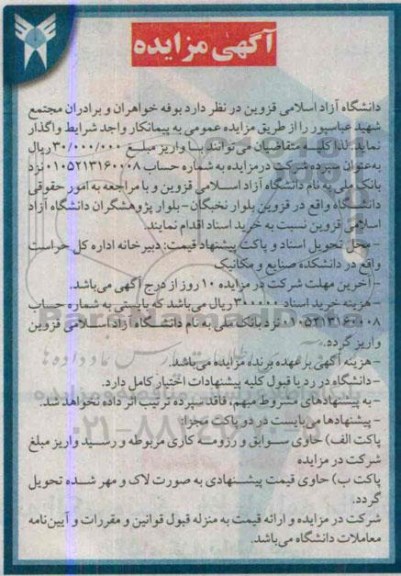 آگهی مزایده
دانشگاه آزاد اسلامی قزوین در نظر دارد بوفه خواهران و برادران مجتمع
شهید عباسپور را از طریق مزایده عمومی به پیمانکار واجد شرایط واگذار
نماید. لذا کلیه متقاضیان می توانند با واریز مبلغ ۳۰/۰۰۰/۰۰۰ ریال
به عنوان سپرده شرکت در مزایده به شماره حساب ۰۱۰۵۲۱۳۱۶۰۰۰۸ نزد
بانک ملی به نام دانشگاه آزاد اسلامی قزوین و با مراجعه به امور حقوقی
دانشگاه واقع در قزوین بلوار نخبگان - بلوار پژوهشگران دانشگاه آزاد
اسلامی قزوین نسبت به خرید اسناد اقدام نمایند.
- محل تحویل اسناد و پاکت پیشنهاد قیمت: دبیرخانه اداره کل حراست
واقع در دانشکده صنایع و مکانیک
- آخرین مهلت شرکت در مزایده ۱۰ روز از درج آگهی می باشد.
- هزینه خرید اسناد ۳۰۰۰۰۰ ریال می باشد که بایستی به شماره حساب
۰۱۰۵۲۱۳۱۶۰۰۰۸ نزد بانک ملی به نام دانشگاه آزاد اسلامی قزوین
واریز گردد.
- هزینه آگهی بر عهده برنده مزایده می باشد.
- دانشگاه در رد یا قبول کلیه پیشنهادات اختیار کامل دارد.
- به پیشنهادهای مشروط مبهم، فاقد سپرده ترتیب اثر داده نخواهد شد.
- پیشنهادها می بایست در دو پاکت مجزا
پاکت الف) حاوی سوابق و رزومه کاری مربوطه و رسید واریز مبلغ
شرکت در مزایده
پاکت ب) حاوی قیمت پیشنهادی به صورت لاک و مهر شده تحویل
گردد.
شرکت در مزایده و ارائه قیمت به منزله قبول قوانین و مقررات و آیین نامه
معاملات دانشگاه می باشد.
ParsNamadData